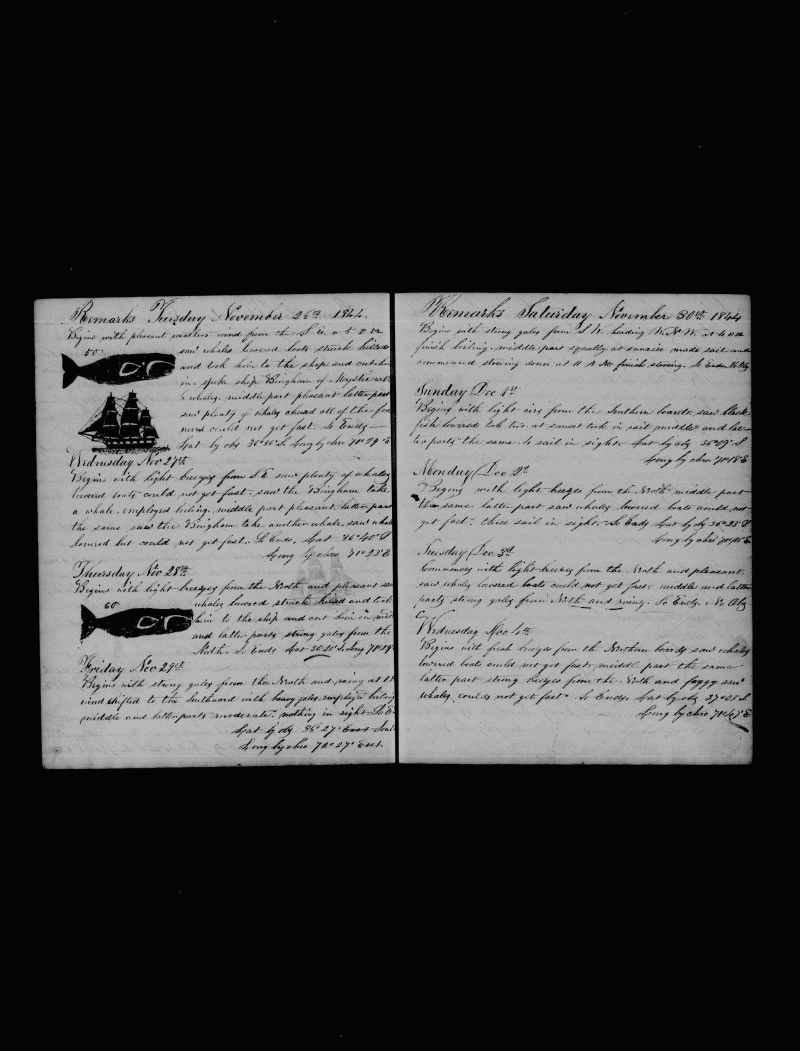 Remarks Tuesday November 26th 1844
Begins with pleasant weather wind from the S. E. a 5 P M
50
saw whales lowered boats struck killed
and took him to the ship and cut him
in. spoke ship Bingham of Mystic with
6 whales. middle part pleasant latter part
saw plenty of whales chased all of the fore
noon could not get fast. So Ends
Lat by obs 36°36' S. Long by chro 71°29' E
Wednesday Nov 27th
Begins with light breezes from S E saw plenty of whales
lowered boats could not get fast. saw the Bingham take
a whale. employed boiling. middle part pleasant. latter part
the same saw the Bingham take another whale. saw whales
lowered but could not get fast. So Ends. Lat 36°40' S
Long by chro 71°23' E
Thursday Nov 28th
Begins with light breezes from the North and pleasant saw
60
whales lowered struck killed and took
him to the ship and cut him in
and latter parts strong gales from the
North. So Ends Lat 36°20' S. Long 71°29'
Friday Nov 29th
Begins with strong gales from the North and rainy at
wind shifted to the Southward with heavy gales. employed boiling
middle and latter parts moderate. nothing in sight. So
Lat by obs 36°27' South
Long by chro 70°27' East.
Remarks Saturday November 30th 1844
Begins with strong gales from S W. heading W. N. W. at 4 P M
finish boiling. middle part squally at sunrise made sail and
commenced stowing down at 11 A M finish stowing. So Ends
Sunday Dec 1st
Begins with light airs from the Southern boards. saw black
fish lowered took two. at sunset took in sail middle and lat-
ter parts the same. 1 sail in sight. Lat by obs 35°19' S
Long by chro 71°18' E
Monday Dec 2d
Begins with light breezes from the North middle part
the same latter part saw whales lowered boats could not
get fast. three sail in sight. So Ends Lat by obs 36°23' S
Long by chro 71°15' E
Tuesday Dec 3d
Commences with light breezes from the North and pleasant.
saw whales lowered boats could not get fast. middle and latter
parts strong gales from North and rainy. So Ends. No Obs
Wednesday Dec 4th
Begins with fresh breezes from the Northern boards saw whales
lowered boats could not get fast. middle part the same
latter part strong breezes from the North and foggy saw
whales. could not get fast. So Ends. Lat by obs 37°05' S
Long by chro 71°47' E